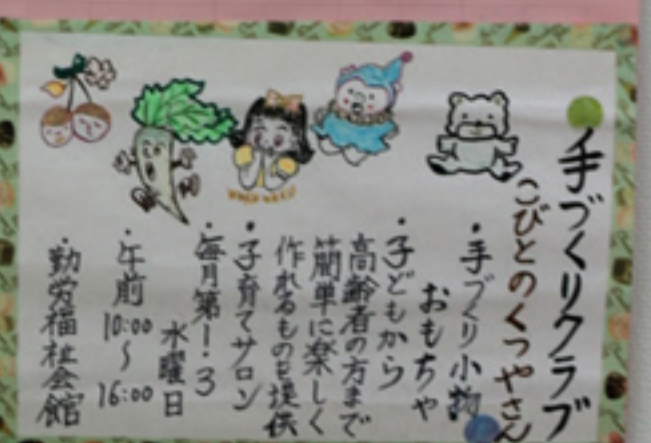 手づくりクラブ
こびとのくつやさん
・手づくり小物
おもちゃ
・子どもから
高齢者の方まで
簡単に楽しく
作れるものを提供
・子育てサロン
・毎月第1・3
水曜日
・午前
10:00
〜
16:00
・勤労福祉会館